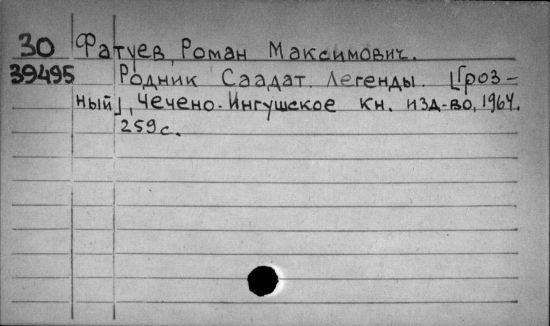 30 Фатуев, Роман Максимович.
39495 Родник Саадат. Легенды. [Гроз-
ный], Чечено-Ингушское кн. изд-во, 1964.
259 с.